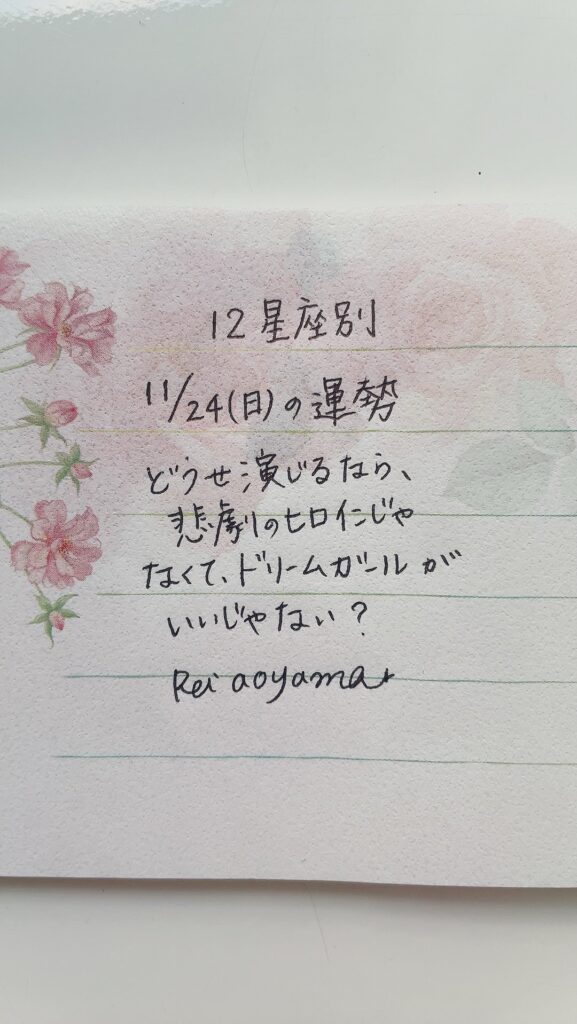 12星座別
11/24(日)の運勢
どうせ演じるなら、
悲劇のヒロインじゃ
なくて、ドリームガールが
いいじゃない？
Rei aoyama